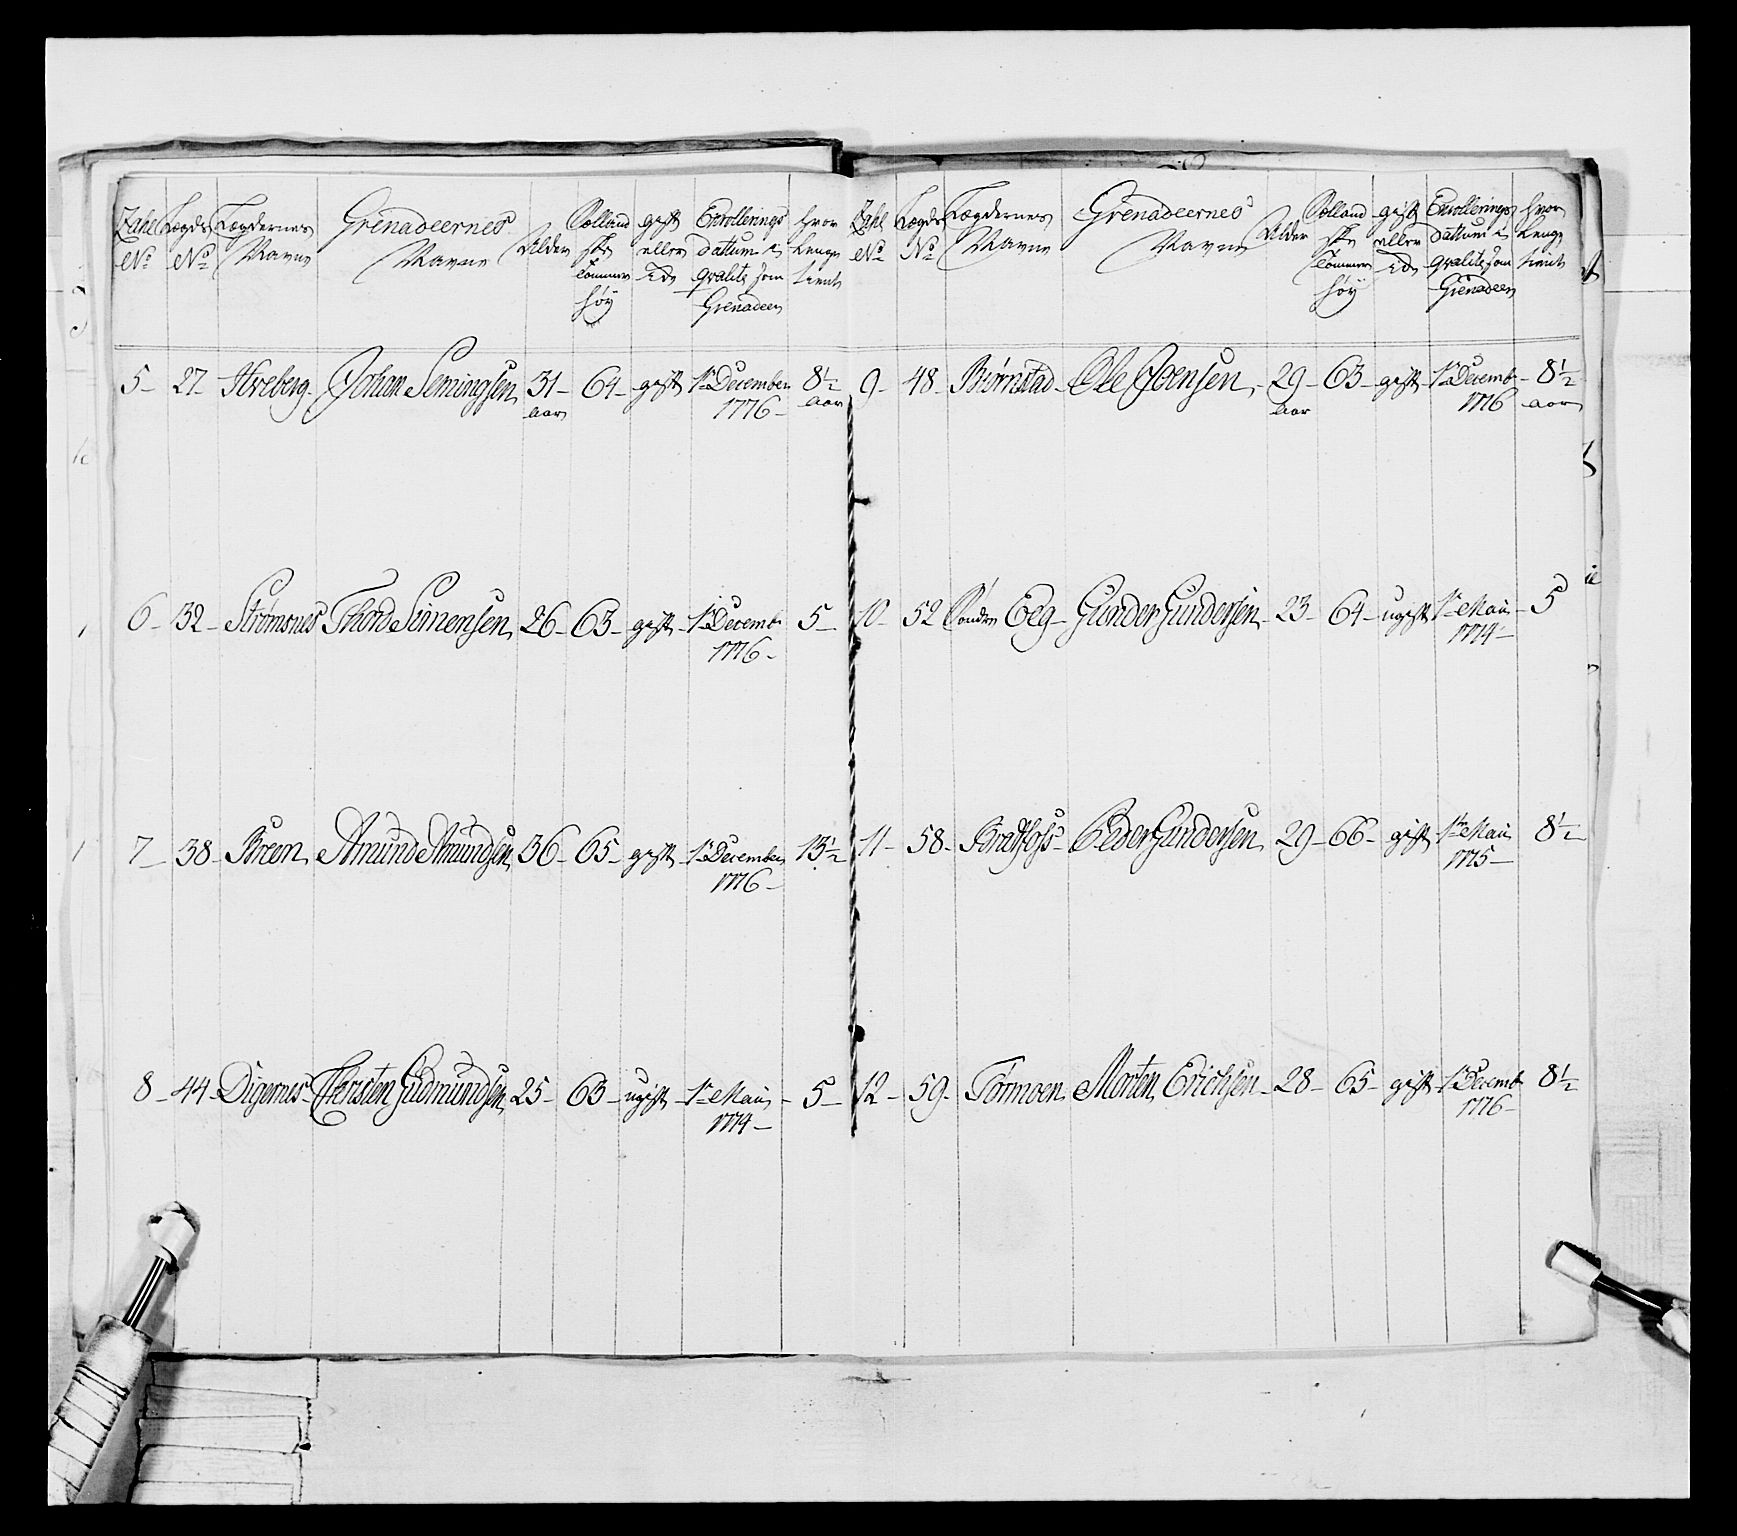 Zahl No | Lægds No | Lægdernes Navne | Grenadeernes Navne | Alder | Rolland ske Tommer høy | gift eller ei | Enrollerings dattum i qvalite som Grenadeer | hvor Længe tient
5 - 27 - Hveberg - Johan Semingsen 31 aar - 64 - gift - 1te December 1776 - 8 1/2 aar
6 - 32 - Strømsnes Thord Simensen 26 - 63 - gift - 1te Decembr 1776 - 5 -
7 - 38 - Breen Amund Amundsen 36 - 65 - gift - 1te December 1776 - 13 1/2
8 - 44 - Digernes Christen Gudmundsen 25 - 63 - ugift - 1te Maii 1774 - 5 -
Zahl No | Lægds No | Lægdernes Navne | Grenadeernes Navne | Alder | Rolland ske Tommer høy | gift eller ei | Enrollerings dattum i qvalite som Grenadeer | hvor Længe tient
9 - 48 - Biørnstad - Ole Joensen 29 aar - 63 - gift - 1te Decembr 1776 - 8 1/2 aar
10 - 52 Søndre Eeg - Gunder Gundersen - 23 - 64 - ugift - 1te Maii 1774 - 5
11 - 58 - Bradfoss - Peder Gundersen 29 - 66 - gift - 1te Maii 1775 - 8 1/2
12 - 59 - Tormoen Morten Erichsen - 28 - 65 - gift - 1te Decembr 1776 - 8 1/2